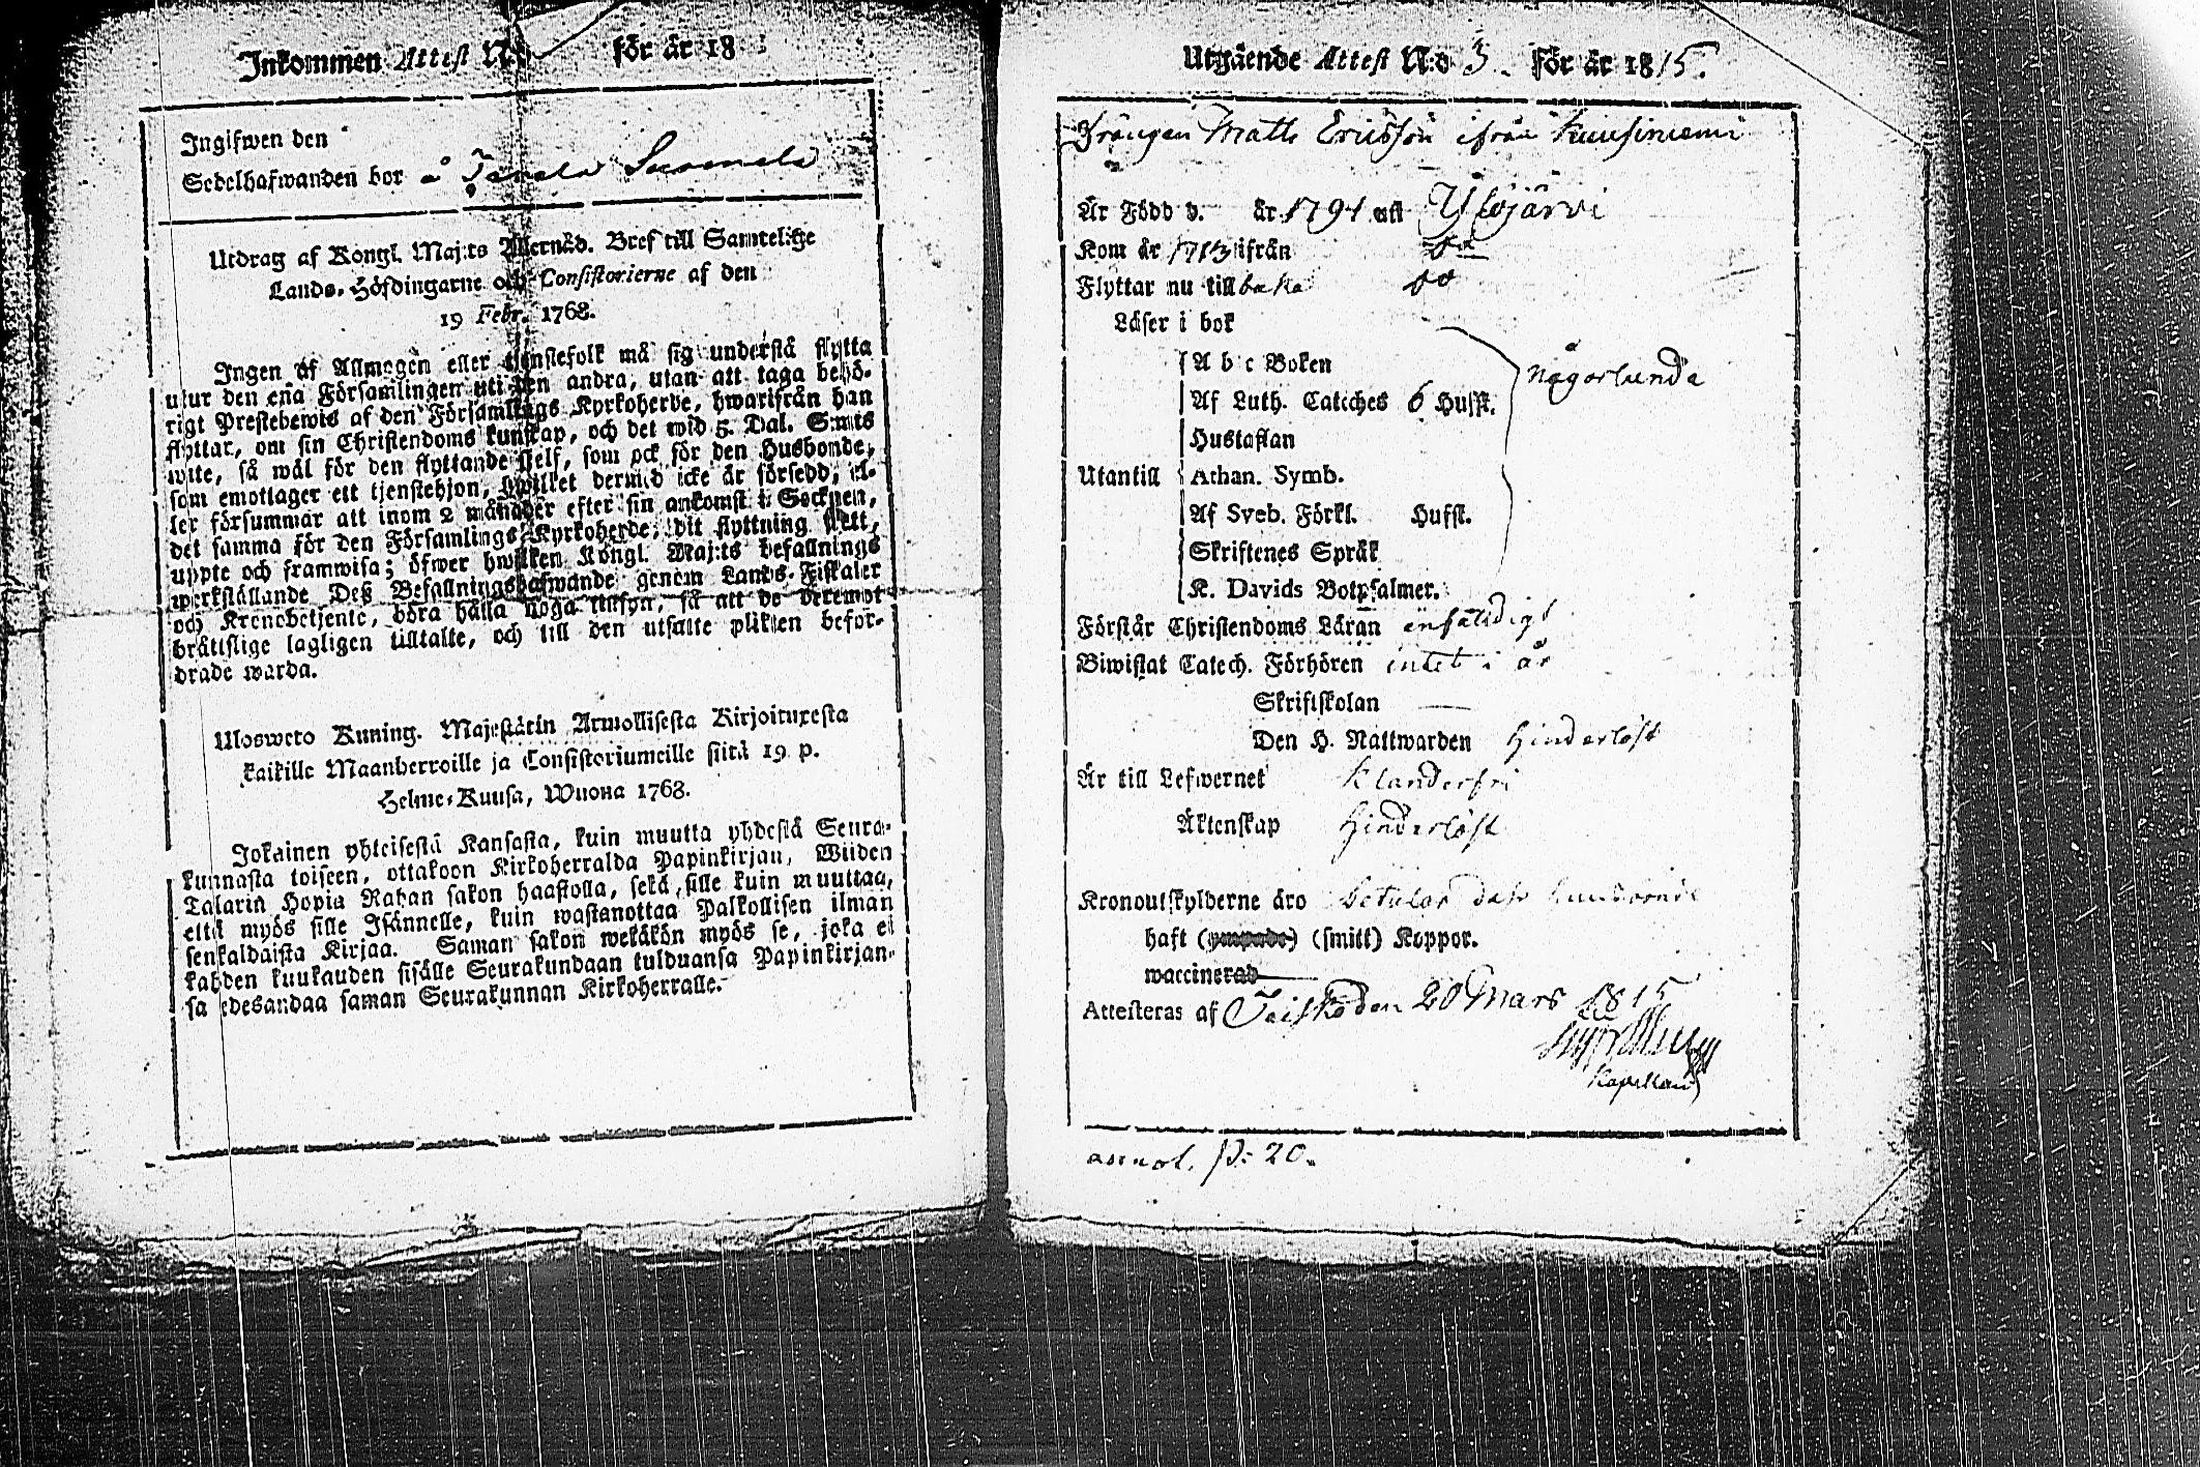 Inkommen Attest N:o för år 18
Ingifwen den
Sedelhafwanden bor å Suomela
Utdrag af Kongl. Maj:ts Allernåd. Bref till Samtelige
Lands-Höfdingarne och Consistorierne af den
19 Febr. 1768.
Ingen af Allmogen eller tjenstefolk må sig understå flytta
utur den ena Församlingen uti den andra, utan att taga behö-
rigt Prestebewis af den Församlings Kyrkoherde, hwarifrån han
flyttar, om sin Christendoms kunskap, och det wid 5. Dal. S:mts
wite, så wäl för den flyttande sjelf, som ock för den Husbonde,
som emottager ett tjenstehjon, hwilket dermed icke är försedd, el-
ler försummar att inom 2 månader efter sin ankomst i Socknen,
det samma för den Församlings Kyrkoherde, dit flyttning skett,
uppte och framwisa; öfwer hwilken Kongl. Maj:ts befallnings
werkställande Deß Befallningshafwande genom Lands-Fiskaler
och Kronobetjente, böra hålla noga tillsyn, så att de deremot
brättslige lagligen tilltalte, och till den utsatte plikten befor-
drade warda.
Ulosweto Kuning. Majestätin Armollisesta Kirjoituxesta
kaikille Maanherroille ja Consistoriumeille siitä 19 p.
Helme-Kuusa, Wuona 1768.
Jokainen yhteisestä Kansasta, kuin muutta yhdestä Seura-
kunnasta toiseen, ottakoon Kirkoherralda Papinkirjan, Wiiden
Talarin Hopia Rahan sakon haastolla, sekä sille kuin muuttaa,
että myös sille Isännelle, kuin wastanottaa Palkollisen ilman
senkaldaista Kirjaa. Saman sakon wekäkön myös se, joka ei
kahden kuukauden sisälle Seurakundaan tulduansa Papinkirjan-
sa edesandaa saman Seurakunnan Kirkoherralle.
Utgående Attest N:o 3. För år 1815.
Drängen Matts Ericsson ifrån Kuusiniemi
Är Född d. år 1791 uti Ylöjärvi
Kom år 1713 ifrån do
Flyttar nu till baka do
Läser i bok
A b c Boken någorlunda
Af Luth. Cateches 6 Hufst.
Hustaflan
Utantill Athan. Symb.
Af Sveb. Förkl. Hufst.
Skriftenes Språk
K. Davids Botpsalmer.
Förstår Christendoms Läran enfaldigt
Biwistat Catech. Förhören intet i år
Skriftskolan —
Den H. Nattwarden Hinderlöst
Är till Lefwernet Klanderfri
Äktenskap Hinderlöst
Kronoutskylderne äro betalar
haft (ympade) (smitt) Koppor.
waccinerad
Attesteras af Teisko den 20 Mars 1815
Kapellan
annot. p: 20.